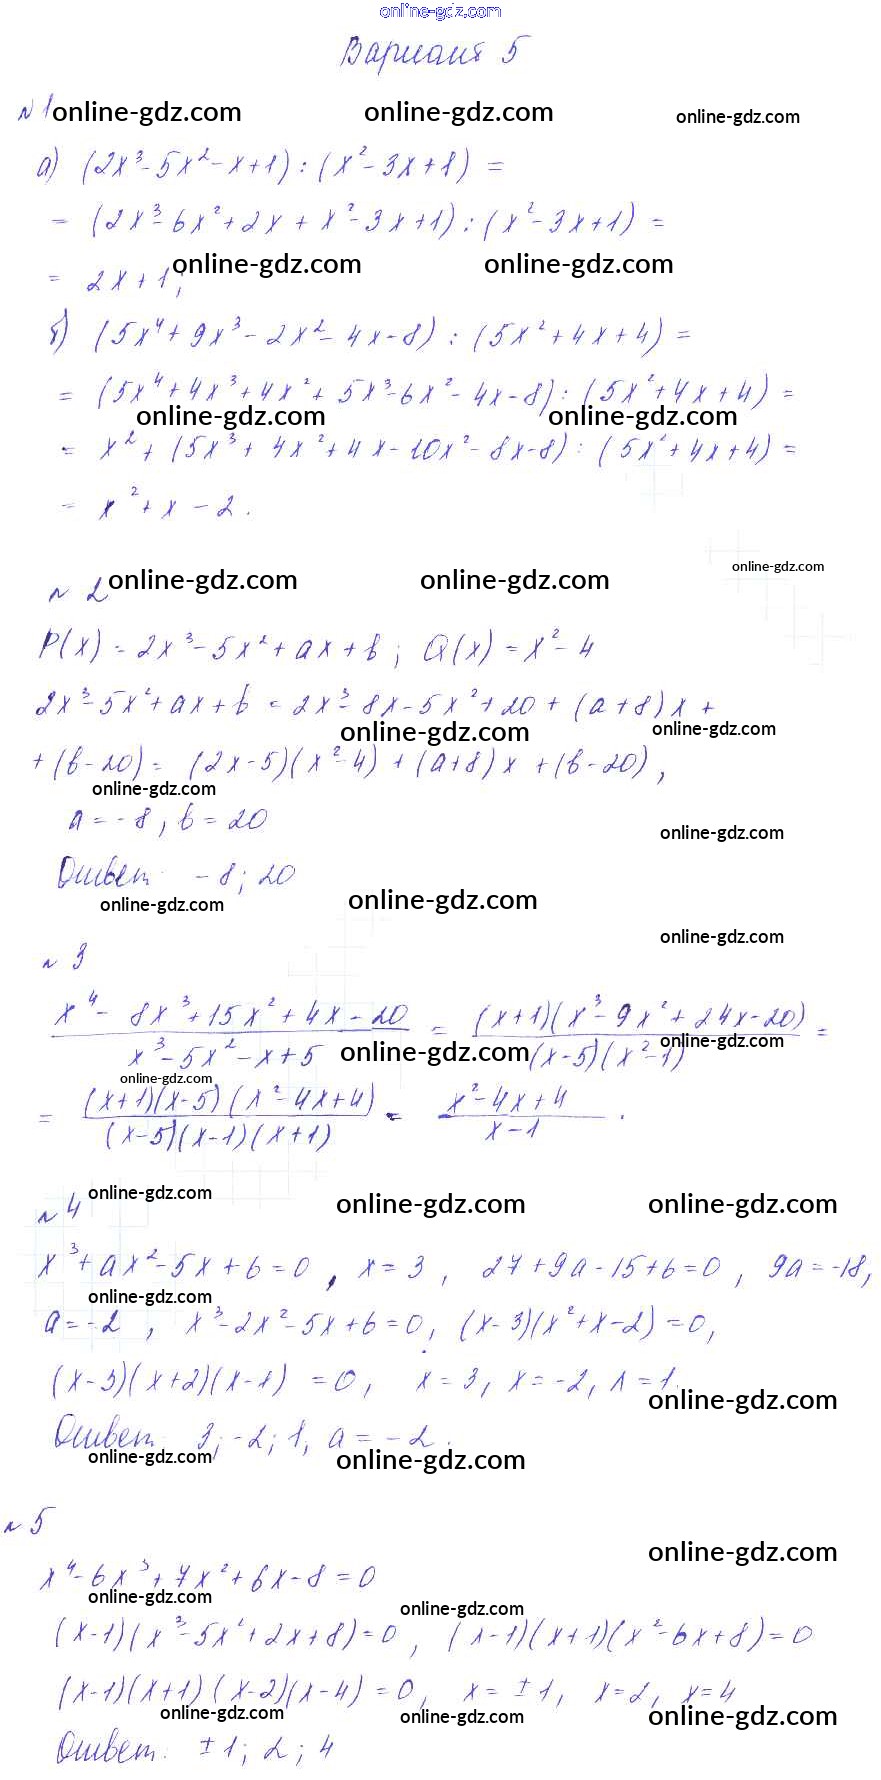 online-gdz.com
Вариант 5
№ 1 online-gdz.com online-gdz.com online-gdz.com
а) (2x³-5x²-x+1) : (x²-3x+1) =
= (2x³-6x²+2x + x²-3x+1) : (x²-3x+1) =
online-gdz.com online-gdz.com
= 2x+1;
б) (5x⁴+9x³-2x²-4x-8) : (5x²+4x+4) =
= (5x⁴+4x³+4x²+5x³-6x²-4x-8) : (5x²+4x+4) =
online-gdz.com online-gdz.com
= x²+(5x³+4x²+4x-10x²-8x-8) : (5x²+4x+4) =
= x²+x-2.
online-gdz.com
№ 2 online-gdz.com online-gdz.com
P(x) = 2x³-5x²+ax+b; Q(x) = x²-4
2x³-5x²+ax+b = 2x³-8x-5x²+20+(a+8)x+
online-gdz.com online-gdz.com
+(b-20) = (2x-5)(x²-4)+(a+8)x+(b-20),
online-gdz.com
a=-8, b=20
online-gdz.com
Ответ: -8; 20
online-gdz.com online-gdz.com
online-gdz.com
№ 3
x⁴-8x³+15x²+4x-20 / x³-5x²-x+5 = (x+1)(x³-9x²+24x-20) / (x-5)(x²-1) =
online-gdz.com online-gdz.com
online-gdz.com
= (x+1)(x-5)(x²-4x+4) / (x-5)(x-1)(x+1) = x²-4x+4 / x-1.
№ 4 online-gdz.com online-gdz.com online-gdz.com
x³+ax²-5x+6=0, x=3, 27+9a-15+6=0, 9a=-18,
online-gdz.com
a=-2, x³-2x²-5x+6=0, (x-3)(x²+x-2)=0,
(x-3)(x+2)(x-1)=0, x=3, x=-2, x=1.
online-gdz.com
Ответ: 3; -2; 1, a=-2.
online-gdz.com online-gdz.com
№ 5
online-gdz.com
x⁴-6x³+7x²+6x-8=0
online-gdz.com online-gdz.com
(x-1)(x³-5x²+2x+8)=0, (x-1)(x+1)(x²-6x+8)=0
(x-1)(x+1)(x-2)(x-4)=0, x=±1, x=2, x=4
online-gdz.com online-gdz.com online-gdz.com
Ответ: ±1; 2; 4